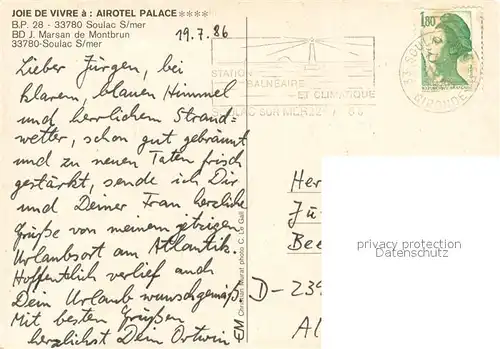 JOIE DE VIVRE à : AIROTEL PALACE****
B.P. 28 - 33780 Soulac S/mer
BD J. Marsan de Montbrun
33780-Soulac S/mer
19.7.86
Lieber Jürgen, bei
klarem, blauen Himmel
und herrlichem Strand-
wetter, schon gut gebräunt
und zu neuen Taten frisch
gestärkt, sende ich Dir
und Deiner Frau herzliche
Grüße von meinem jetzigen
Urlaubsort am Atlantik.
Hoffentlich verlief auch
Dein Urlaub wunschgemäß.
Mit besten Grüßen
herzlichst Dein Ortwin
EM Christian Murat photo C. Le Gall
STATION
BALNEAIRE
ET CLIMATIQUE
SOULAC SUR MER
1,80
GIRONDE
Her
Jü
Bee
D-239
Al
privacy protection
Datenschutz